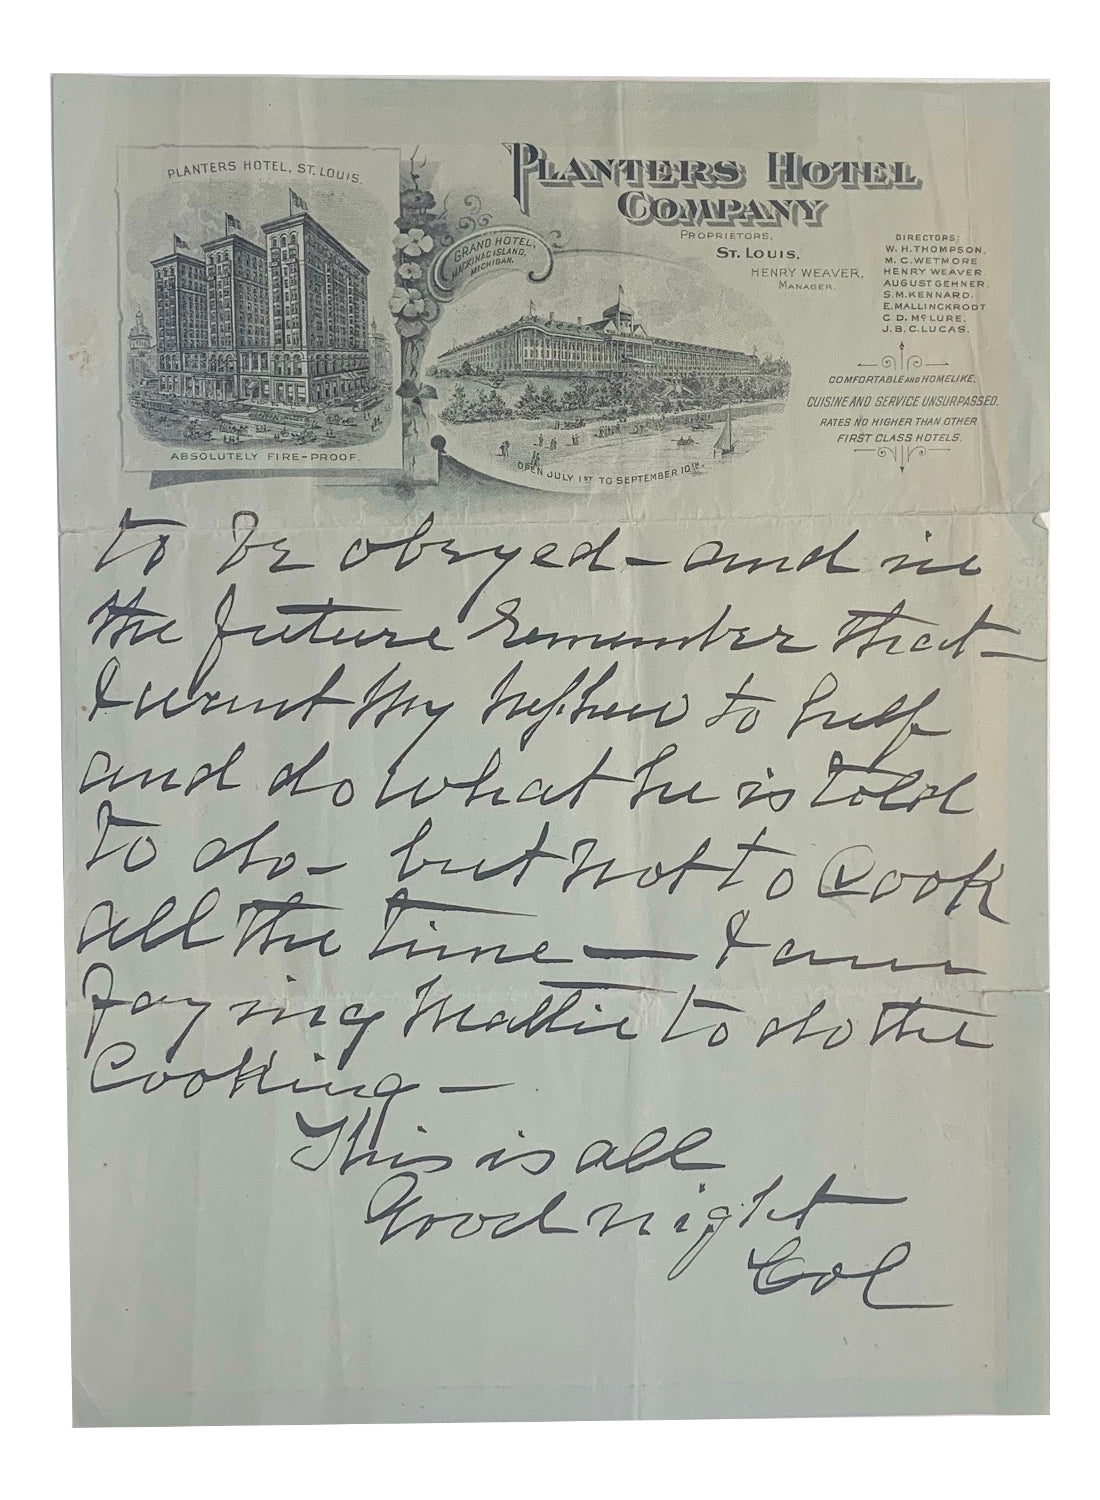 PLANTERS HOTEL, ST. LOUIS.
ABSOLUTELY FIRE-PROOF.
GRAND HOTEL,
MACKINAC ISLAND,
MICHIGAN.
OPEN JULY 1ST TO SEPTEMBER 10TH.
PLANTERS HOTEL
COMPANY
PROPRIETORS.
ST. LOUIS.
HENRY WEAVER,
MANAGER.
DIRECTORS:
W. H. THOMPSON.
M. C. WETMORE.
HENRY WEAVER.
AUGUST GEHNER.
S. M. KENNARD.
E. MALLINCKRODT
C. D. McLURE.
J. B. C. LUCAS.
COMFORTABLE AND HOMELIKE.
CUISINE AND SERVICE UNSURPASSED.
RATES NO HIGHER THAN OTHER
FIRST CLASS HOTELS.
to be obeyed – and in
the future remember that –
I want my nephew to help
and do what he is told
to do – but not to cook
all the time — I am
paying Mattie to do the
Cooking –
This is all
Good night
Col